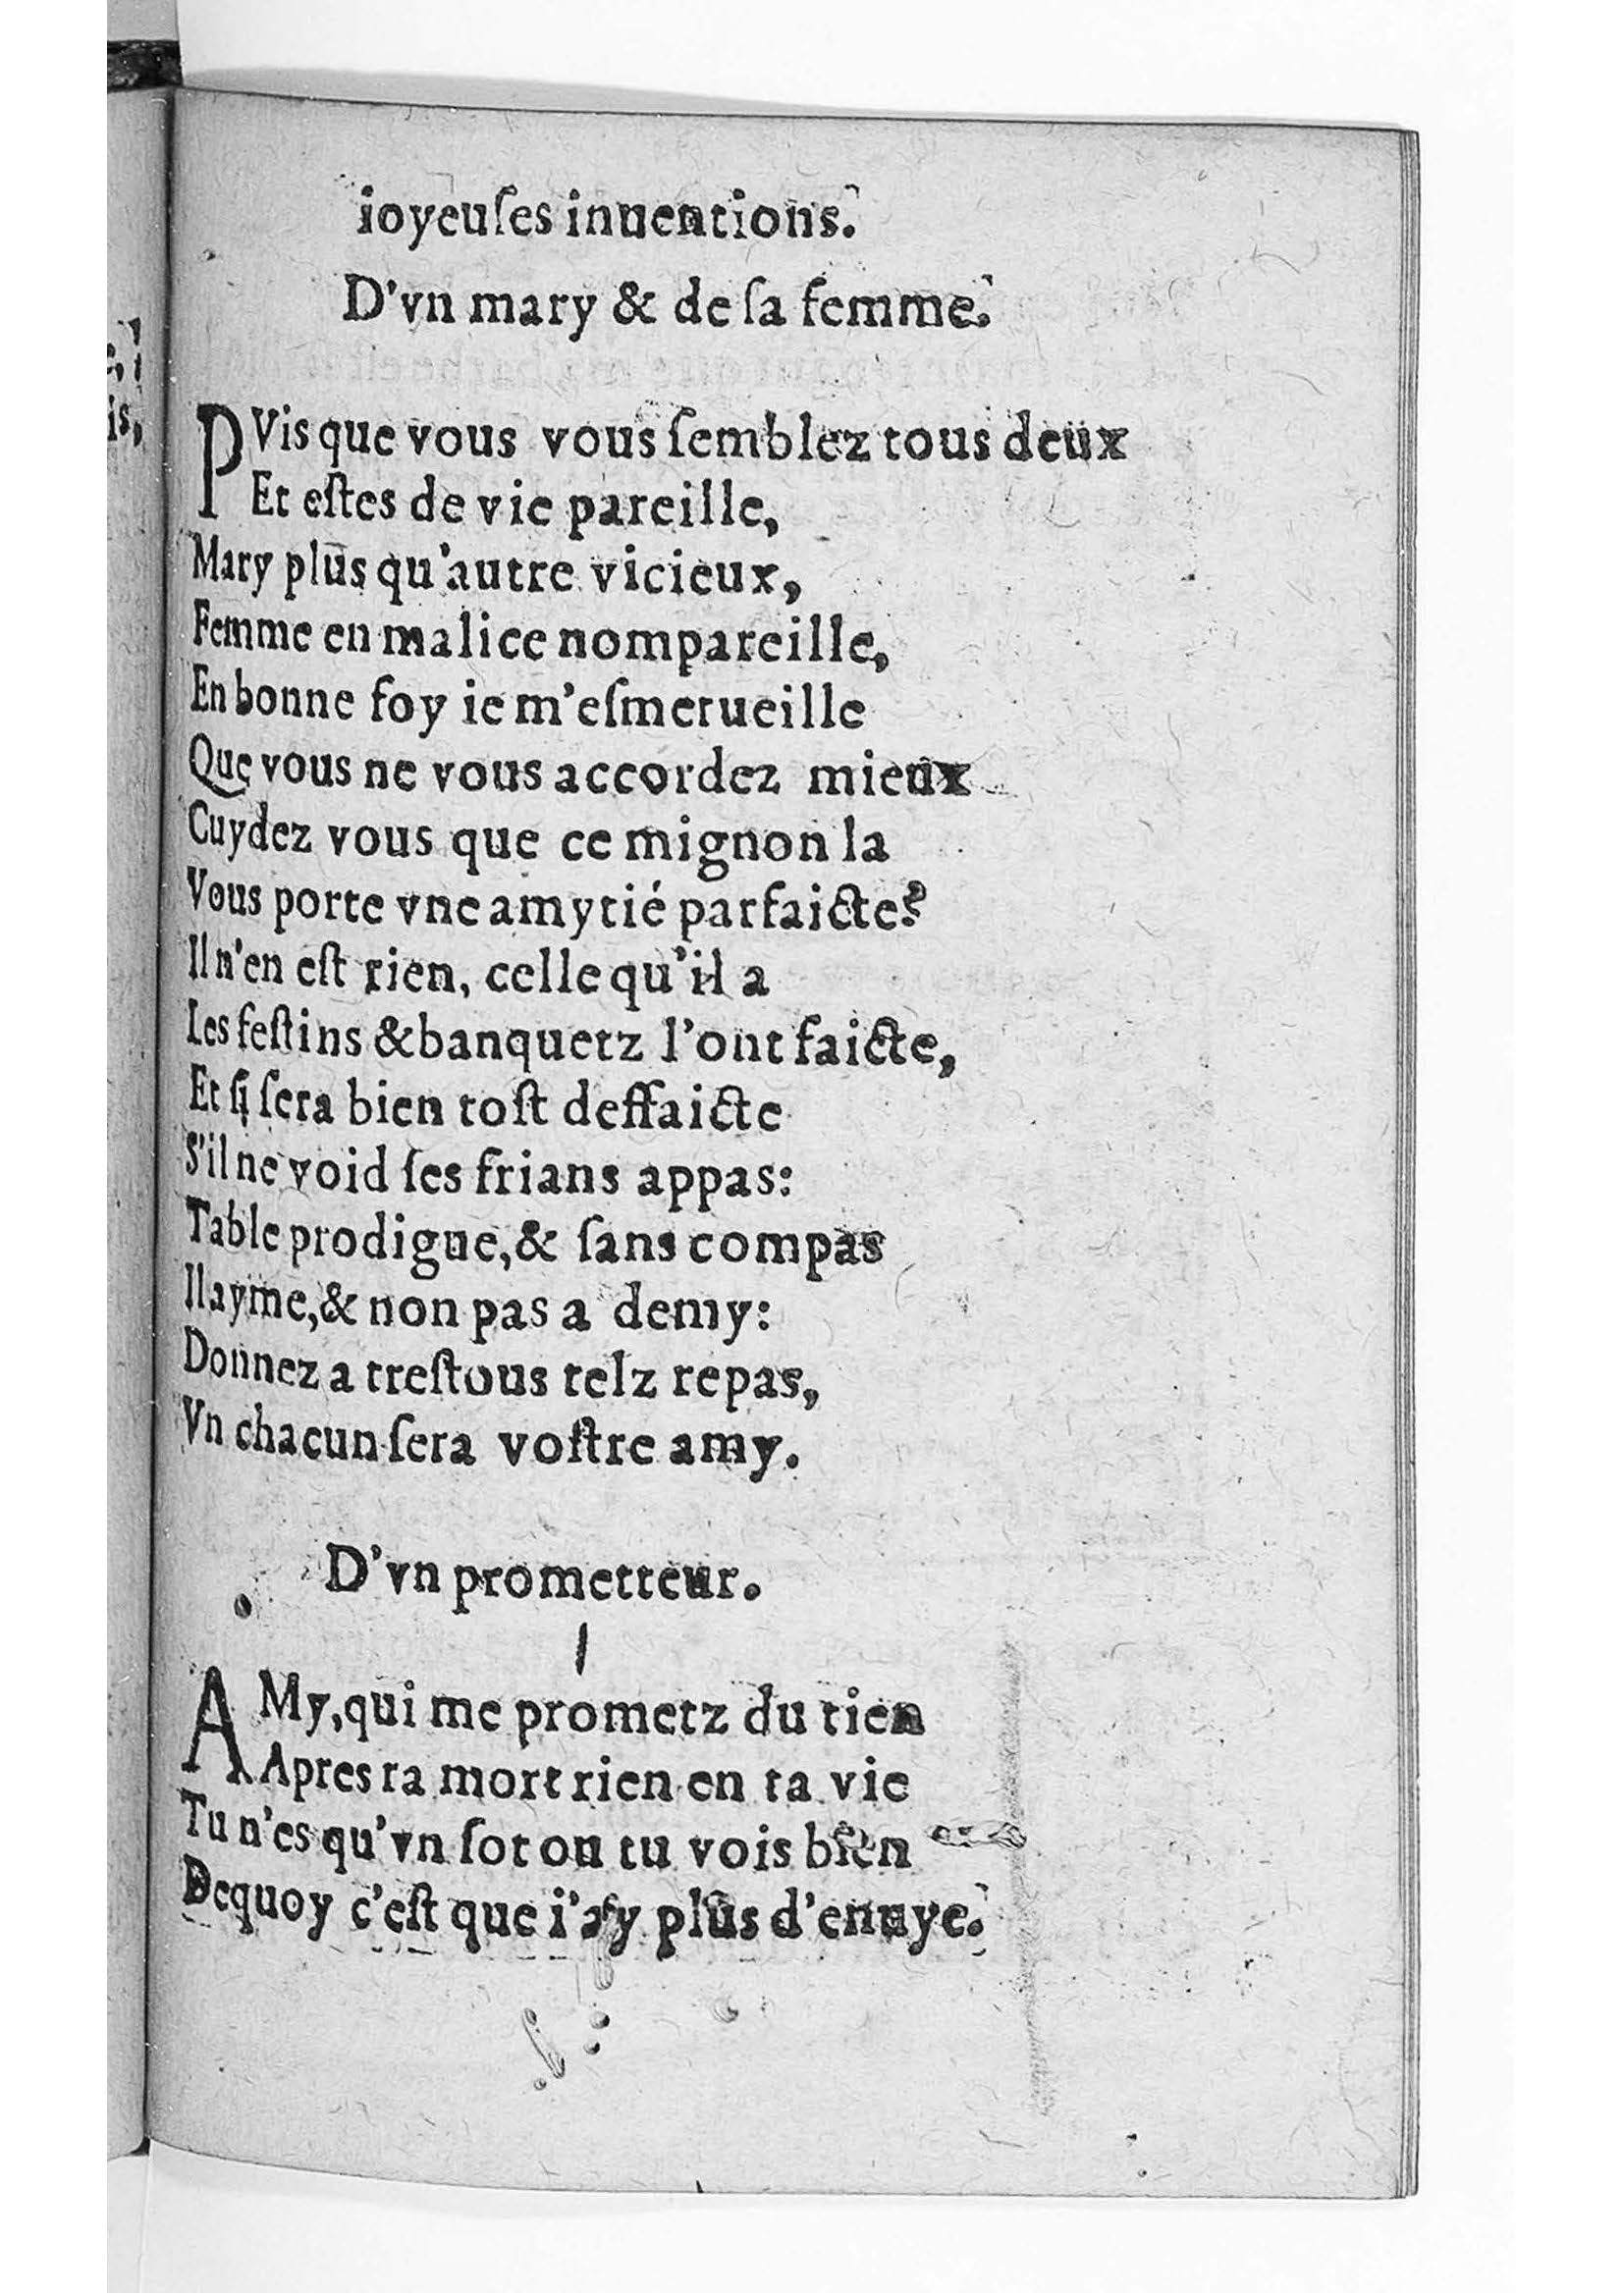 ioyeuſes inuentions.
D'vn mary & de ſa femme.
PVis que vous vous ſemblez tous deux
Et eſtes de vie pareille,
Mary plus qu'autre vicieux,
Femme en malice nompareille,
En bonne foy ie m'eſmerueille
Que vous ne vous accordez mieux
Cuydez vous que ce mignon la
Vous porte vne amytié parfaicte?
Il n'en eſt rien, celle qu'il a
Les feſtins & banquetz l'ont faicte,
Et ſi ſera bien toſt deffaicte
S'il ne void ſes frians appas:
Table prodigue, & ſans compas
Il ayme, & non pas a demy:
Donnez a treſtous telz repas,
Vn chacun ſera voſtre amy.
D'vn prometteur.
AMy, qui me prometz du tien
Apres ta mort rien en ta vie
Tu n'es qu'vn ſot ou tu vois bien
Dequoy c'eſt que i'ay plus d'enuye.